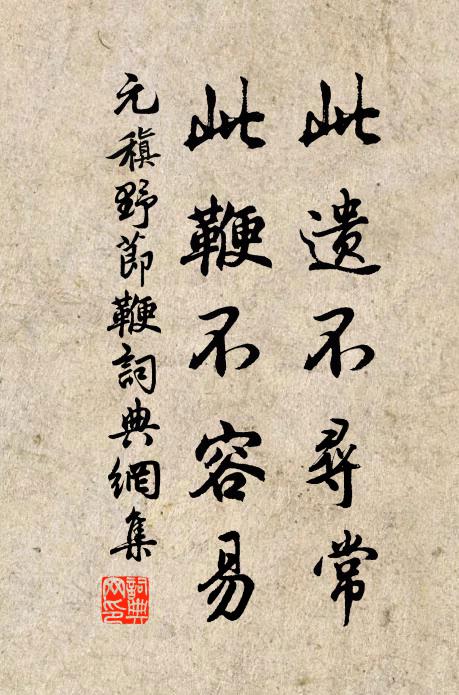 此遺不尋常
此鞭不容易
元稹野節鞭詞典網集
詞典網印